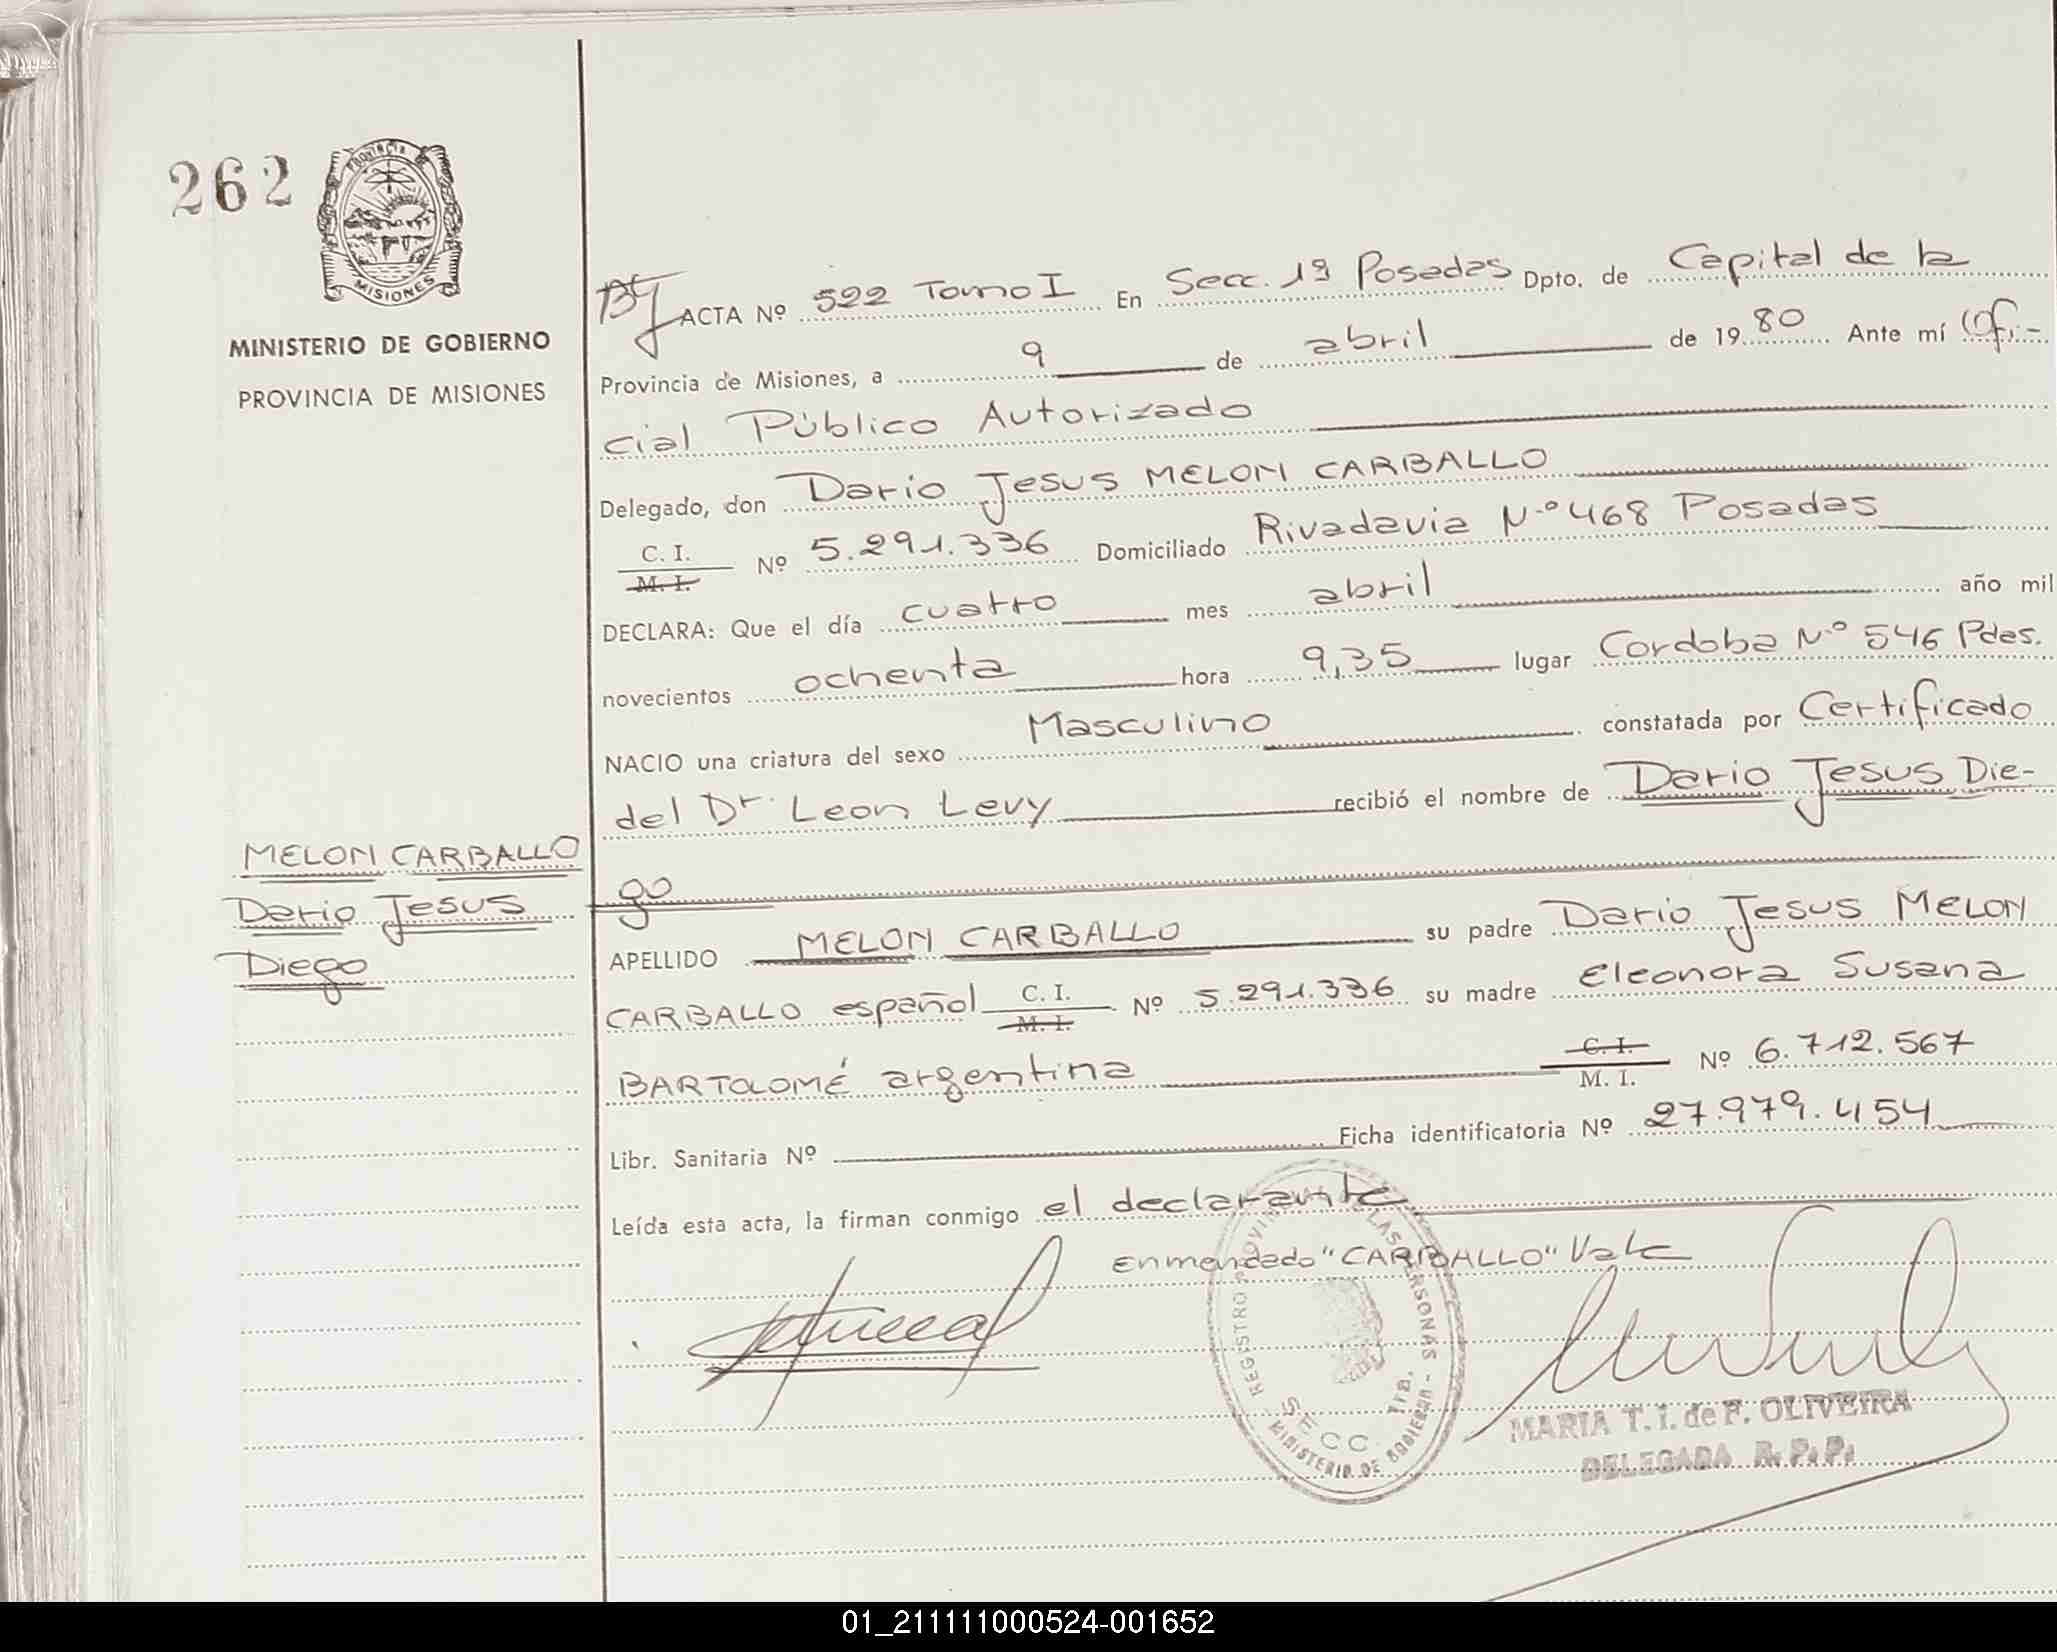 262
PROVINCIA
MISIONES
MINISTERIO DE GOBIERNO
PROVINCIA DE MISIONES
ACTA Nº 522 Tomo I En Secc. 1ª Posadas Dpto. de Capital de la
Provincia de Misiones, a 9 de abril de 1980 Ante mí Ofi-
cial Público Autorizado
Delegado, don Dario Jesus MELON CARBALLO
C. I.
M. I. Nº 5.291.336 Domiciliado Rivadavia N.º 468 Posadas
DECLARA: Que el día cuatro mes abril año mil
novecientos ochenta hora 9,35 lugar Cordoba N.º 546 Pdes.
NACIO una criatura del sexo Masculino constatada por Certificado
del Dr. Leon Levy recibió el nombre de Dario Jesus Die-
go
MELON CARBALLO
Dario Jesus
Diego
APELLIDO MELON CARBALLO su padre Dario Jesus MELON
CARBALLO español C. I. M. I. Nº 5.291.336 su madre Eleonora Susana
BARTOLOMÉ argentina C. I. M. I. Nº 6.712.567
Libr. Sanitaria Nº Ficha identificatoria Nº 27.979.454
Leída esta acta, la firman conmigo el declarante
Enmendado "CARBALLO" Vale
REGISTRO PROVIN LAS PERSONAS
SECC. 1ra.
MINISTERIO DE GOBIERNO
MARIA T. I. de F. OLIVEIRA
DELEGADA R. P. P.
01_211111000524-001652